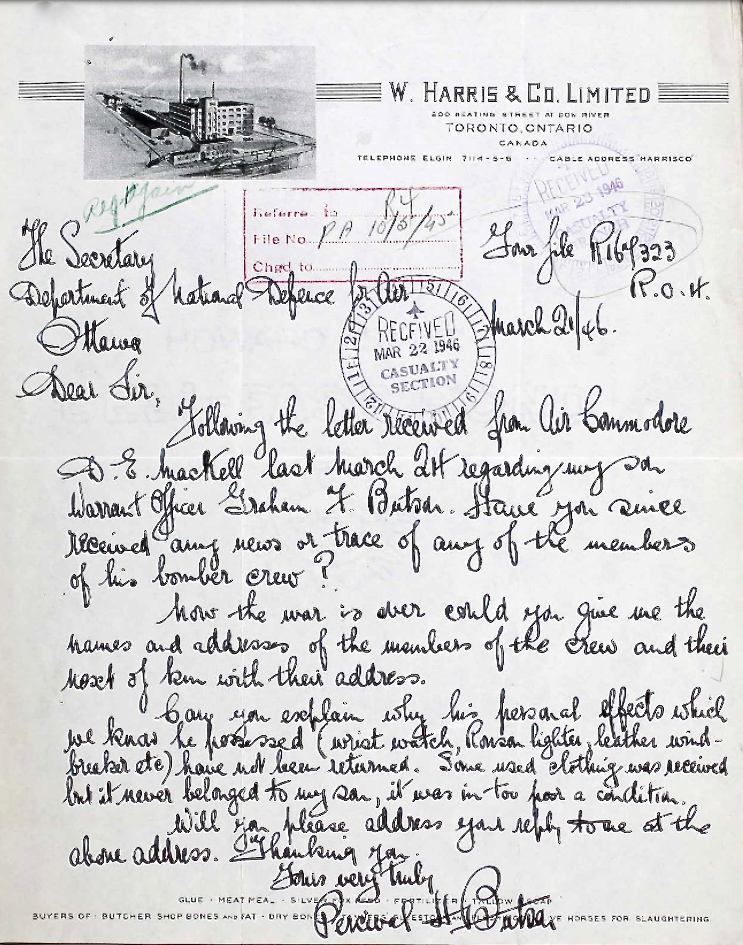 W. HARRIS & CO. LIMITED
200 KEATING STREET AT DON RIVER
TORONTO, ONTARIO
CANADA
TELEPHONE ELGIN 7114-5-6 · · · CABLE ADDRESS "HARRISCO"
RECEIVED
MAR 23 1946
CASUALTY
Referred to R4
File No. PA 10/5/45
Chgd to
The Secretary
Your file R164323
Department of National Defence for Air
R.O.4.
Ottawa
March 21/46.
RECEIVED
MAR 22 1946
CASUALTY
SECTION
Dear Sir,
Following the letter received from Air Commodore
D. E. MacKell last March 24 regarding my son
Warrant Officer Graham F. Butson. Have you since
received any news or trace of any of the members
of his bomber crew?
Now the war is over could you give me the
names and addresses of the members of the crew and their
next of kin with their address.
Can you explain why his personal effects which
we know he possessed (wrist watch, Ronson lighter, leather wind-
breaker etc) have not been returned. Some used clothing was received
but it never belonged to my son, it was in too poor a condition.
Will you please address your reply to me at the
above address. Thanking you.
Yours very truly
Percival H. Butson
GLUE · MEAT MEAL · SILVER FOX FEED · FERTILIZER · TALLOW
BUYERS OF: BUTCHER SHOP BONES AND FAT - DRY BONES HORSES FOR SLAUGHTERING